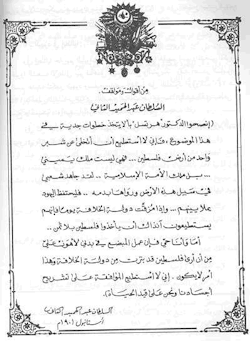 من أقواله ومواقفه
السلطان عبد الحميد الثاني
(إنصحوا الدكتور هرتسل بألا يتخذ خطوات جدية في
هذا الموضوع، فإني لا أستطيع أن أتخلى عن شبر
واحد من أرض فلسطين... فهي ليست ملك يميني
... بل ملك الأمة الإسلامية... لقد جاهد شعبي
في سبيل هذه الأرض ورواها بدمه.. فليحتفظ اليهود
بملايينهم... وإذا مزقت دولة الخلافة يوما فإنهم
يستطيعون آنذاك أن يأخذوا فلسطين بلا ثمن..
أما وأنا حي فإن عمل المبضع في بدني لأهون علي
من أن أرى فلسطين قد بترت من دولة الخلافة وهذا
أمر لا يكون.. إني لا أستطيع الموافقة على تشريح
أجسادنا ونحن على قيد الحياة).
السلطان عبد الحميد الثاني
استانبول ١٩٠١م